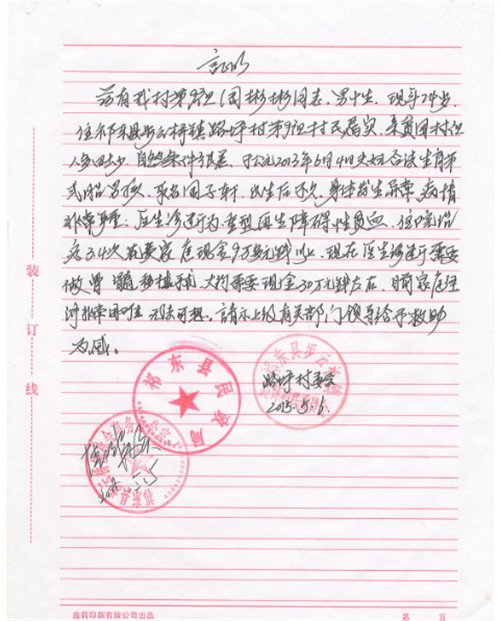 证明
兹有我村第9组周彬彬同志，男性，现年24岁，
住祁东县步云桥镇路坪村第9组村民居实，
人多田少，自然条件很差，于公元2013年6月4日夫妇合法生育
男孩，取名周子轩，出生后不久，身体发生异常，病情
非常严重，医生诊断为：重型再生障碍性贫血，住院治
疗3.4次花费家庭现金9万多元以上，现在医生诊断需要
做骨髓移植，大约需要现金30万元左右，目前家庭经
济非常困难，无法可想，请示上级有关部门领导给予救助
为感。
路坪村委会
2015.5.6.
祁东县民政局
装
订
线
鑫莉印刷有限公司出品
第 页